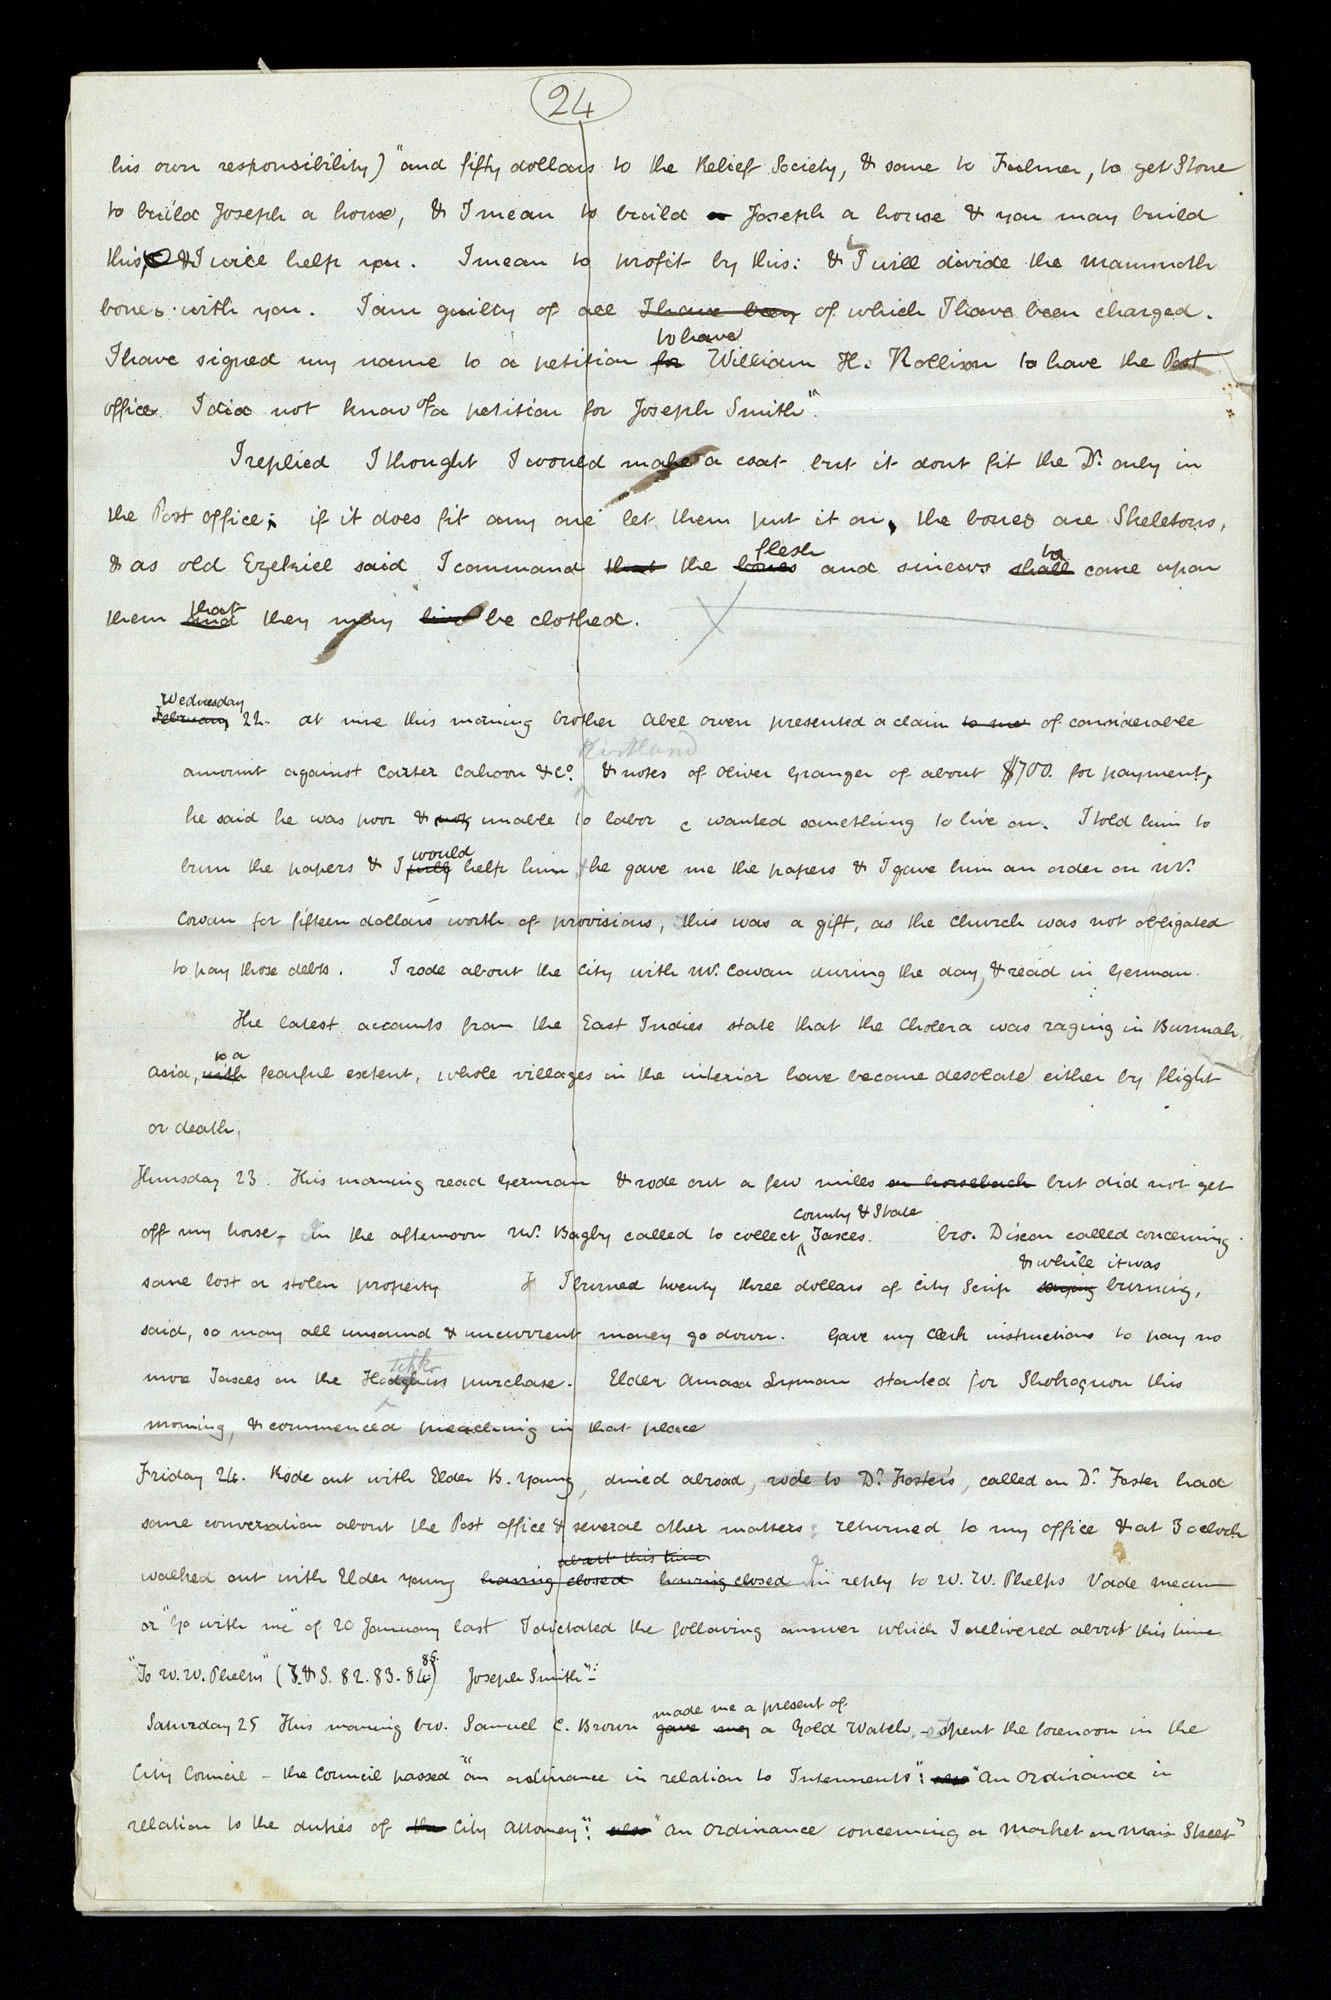 24
his own responsibility) "and fifty dollars to the Relief Society, & some to Fulmer, to get Stone
to build Joseph a house, & I mean to build a Joseph a house & you may build
this, & I will help you. I mean to profit by this: & I will divide the mammoth
bones with you. I am guilty of all I have been of which I have been charged.
to have
I have signed my name to a petition for William H. Rollison to have the Post
office I did not know of a petition for Joseph Smith".
I replied I thought I would make a coat but it dont fit the Dr. only in
the Post office; if it does fit any one let them put it on, the bones are Skeletons,
flesh to
& as old Ezekiel said I command that the bones and sinews shall come upon
that
them and they may live be clothed.
Wednesday
February 22. at nine this morning brother Abel Owen presented a claim to me of considerable
Kirtland
amount against Carter Cahoon & Co. & notes of Oliver Granger of about $700. for payment,
he said he was poor & unable to labor & wanted something to live on. I told him to
would
burn the papers & I will help him, he gave me the papers & I gave him an order on Mr.
Cowan for fifteen dollars worth of provisions, this was a gift, as the Church was not obligated
to pay those debts. I rode about the City with Mr. Cowan during the day, & read in German.
The latest accounts from the East Indies state that the Cholera was raging in Burmah,
to a
Asia, with fearful extent, whole villages in the interior have become desolate either by flight
or death.
Thursday 23. This morning read German & rode out a few miles on horseback but did not get
County & State
off my horse. In the afternoon Mr. Bagby called to collect Taxes. bro. Dixon called concerning
& while it was
some lost or stolen property I burned twenty three dollars of City Scrip burning,
said, so may all unsound & uncurrent money go down. Gave my Clerk instructions to pay no
tchk
more Taxes on the Hotchkiss purchase. Elder Amasa Lyman started for Shokoquon this
morning, & commenced preaching in that place
Friday 24. Rode out with Elder B. Young, dined abroad, rode to Dr. Foster's, called on Dr. Foster had
some conversation about the Post office & several other matters: returned to my office & at 3 oclock
about this time
walked out with Elder Young having closed having closed In reply to W. W. Phelps Vade mecum
or "Go with me" of 20 January last I dictated the following answer which I delivered about this time
"To W. W. Phelps" (T. & S. 82. 83. 84 85) Joseph Smith":
made me a present of
Saturday 25 This morning bro. Samuel C. Brown gave me a Gold Watch, - Spent the forenoon in the
City Council - the Council passed "an ordinance in relation to Interments": also "An Ordinance in
relation to the duties of the City Attorney": also "An Ordinance concerning a Market on Main Street"